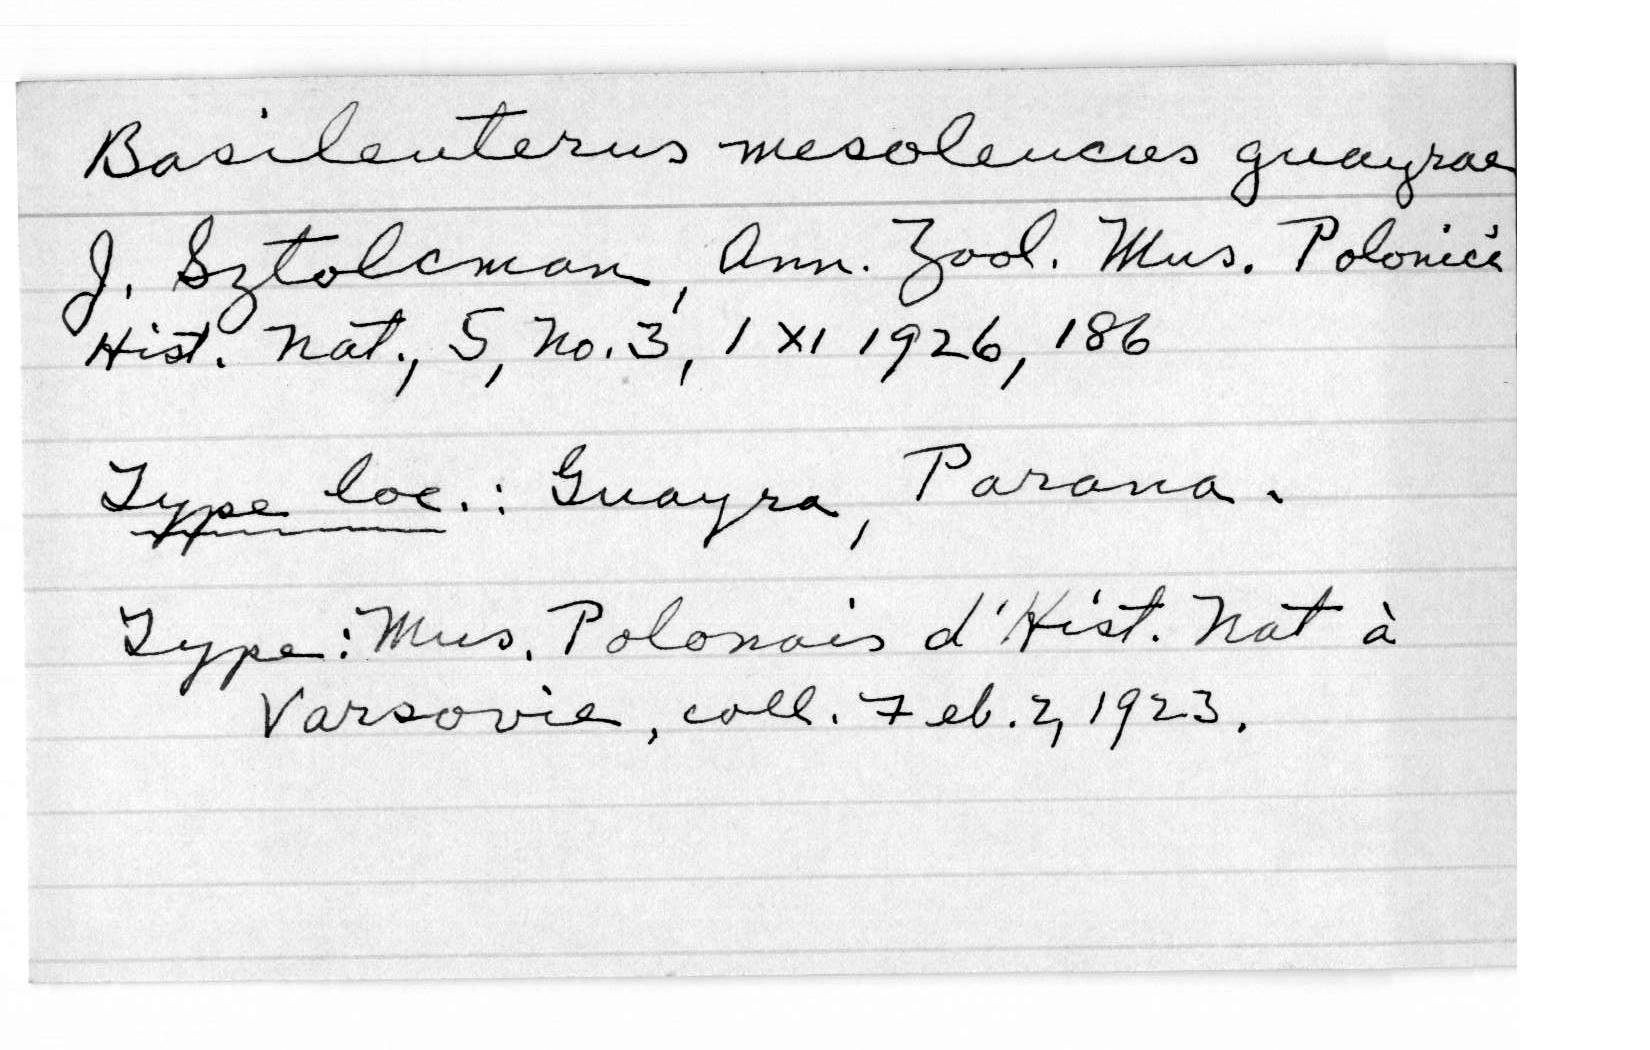 Basileuterus mesoleucus guayrae
J. Sztolcman, Ann. Zool. Mus. Polonici
Hist. Nat., 5, No. 3, 1 XI 1926, 186
Type loc.: Guayra, Parana.
Type: Mus. Polonais d'Hist. Nat à
Varsovie, coll. Feb. 2, 1923.